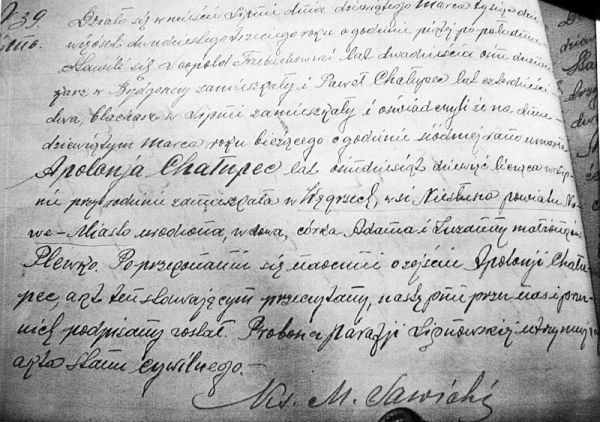 39.
Działo się w mieście Lipnie dnia dziewiątego Marca tysiąc dzie-
więćset dwudziestego trzeciego roku o godzinie piątej po południu
Stawili się Leopold lat dwadzieścia osm
w Bydgoszczy zamieszkały i Paweł Chałupec lat czterdzieści
dwa, blacharz w Lipnie zamieszkały i oświadczyli że na dniu
dziewiątym Marca roku bieżącego o godzinie siódmej rano umarła
Apolonja Chałupec lat ośmdziesiąt dziewięć licząca w Lip-
nie przy rodzinie zamieszkała w Węgrzech, wsi powiatu No-
we-Miasto urodzona, wdowa, córka Adama i Zuzanny małżonków
Plewko. Po przekonaniu się naocznie o zejściu Apolonji Chału-
pec, akt ten stawającym przeczytany, następnie przez nas i przez
nich podpisany został. Proboszcz Parafji Lipnowskiej utrzymujący
akta stanu cywilnego.-
Ks. M. Sawicki